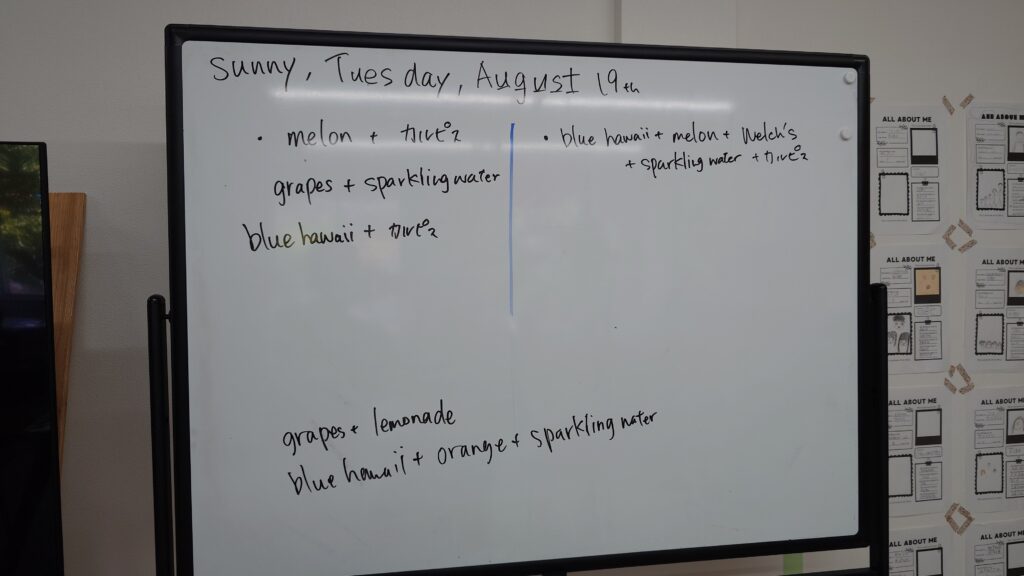 Sunny, Tuesday, August 19th
• melon + カルピス
grapes + sparkling water
blue hawaii + カルピス
• blue hawaii + melon + Welch's
+ sparkling water + カルピス
grapes + lemonade
blue hawaii + orange + sparkling water
ALL ABOUT ME
ALL ABOUT ME
ALL ABOUT ME
ALL ABOUT ME
ALL ABOUT ME
ALL ABOUT ME
ALL ABOUT ME